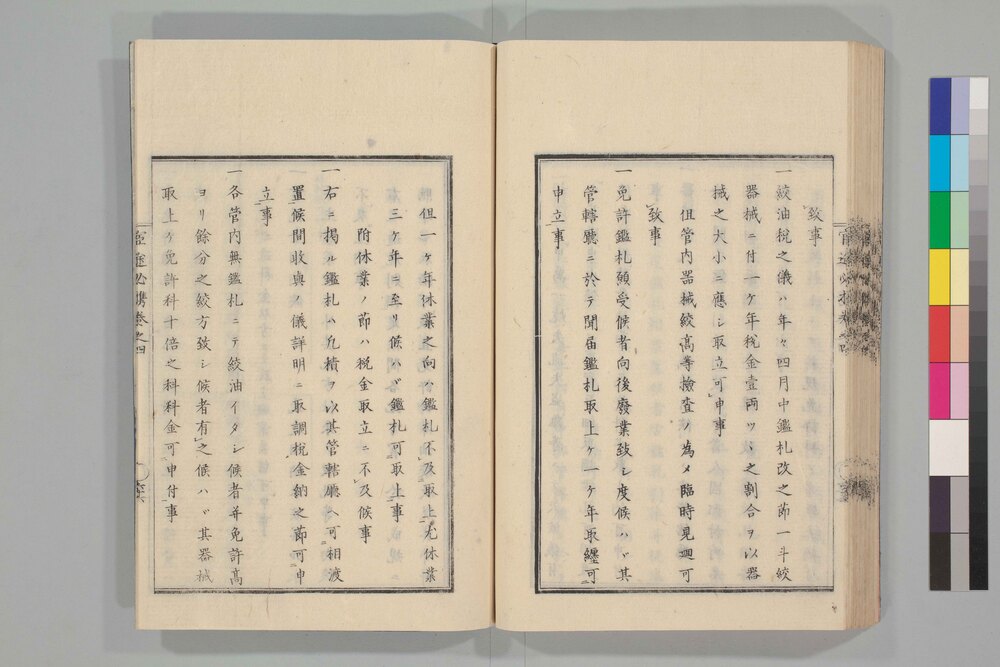 致事
一絞油税之儀ハ年々四月中鑑札改之節一斗絞
器械ニ付一ケ年税金壹両ツヽ之割合ヲ以器
械之大小ニ應シ取立可申事
但管内器械絞高等檢査ノ為メ臨時見廻可
致事
一免許鑑札願受候者向後廢業致シ度候ハヾ其
管轄廳ニ於テ聞届鑑札取上ケ一ケ年取纒可
申立事
但一ケ年休業之向ハ鑑札不及取上尤休業
三ケ年ニ至リ候ハヾ鑑札可取上事
附休業ノ節ハ税金取立ニ不及候事
一右ニ掲ル鑑札ハ凡積ヲ以其管轄廳ヘ可相渡
置候間收與ノ儀詳明ニ取調税金納之節可申
立事
一各管内無鑑札ニテ絞油イタシ候者并免許高
ヨリ餘分之絞方致シ候者有之候ハヾ其器械
取上ケ免許料十倍之科料金可申付事
官途必携巻之四
六